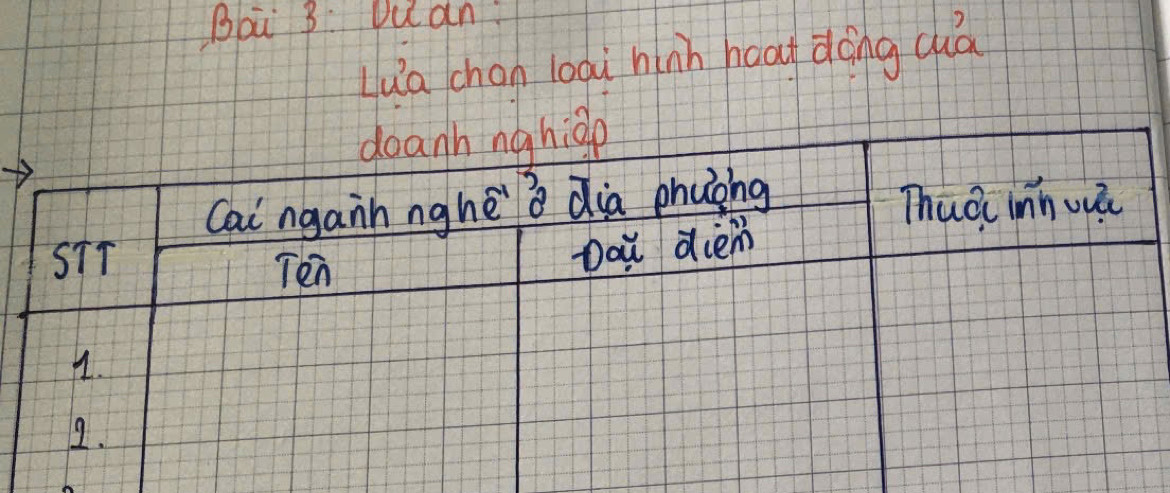 Bài 3: Dự án:
Lựa chọn loại hình hoạt động của
doanh nghiệp
→
STT
Các ngành nghề ở địa phương
Thuộc lĩnh vực
Tên
Đặc điểm
1.
2.